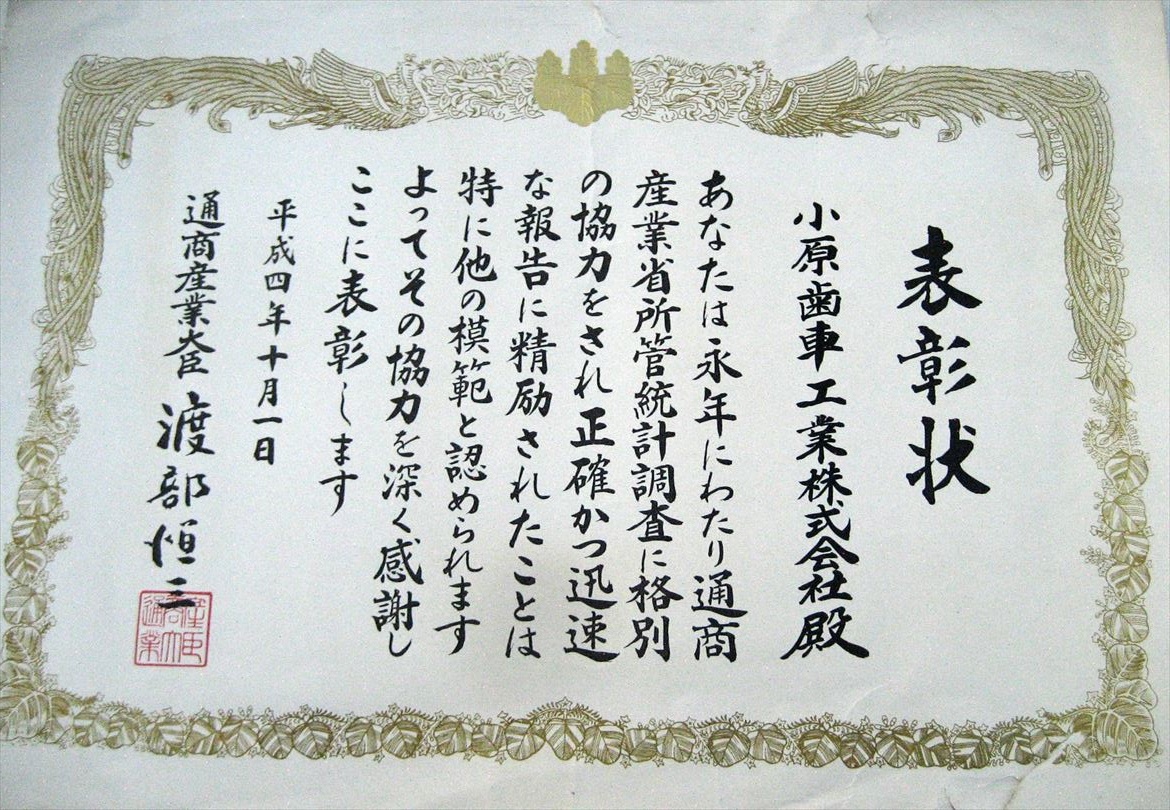 表彰状
小原歯車工業株式会社殿
あなたは永年にわたり通商
産業省所管統計調査に格別
の協力をされ正確かつ迅速
な報告に精励されたことは
特に他の模範と認められます
よってその協力を深く感謝し
ここに表彰します
平成四年十月一日
通商産業大臣 渡部恒三